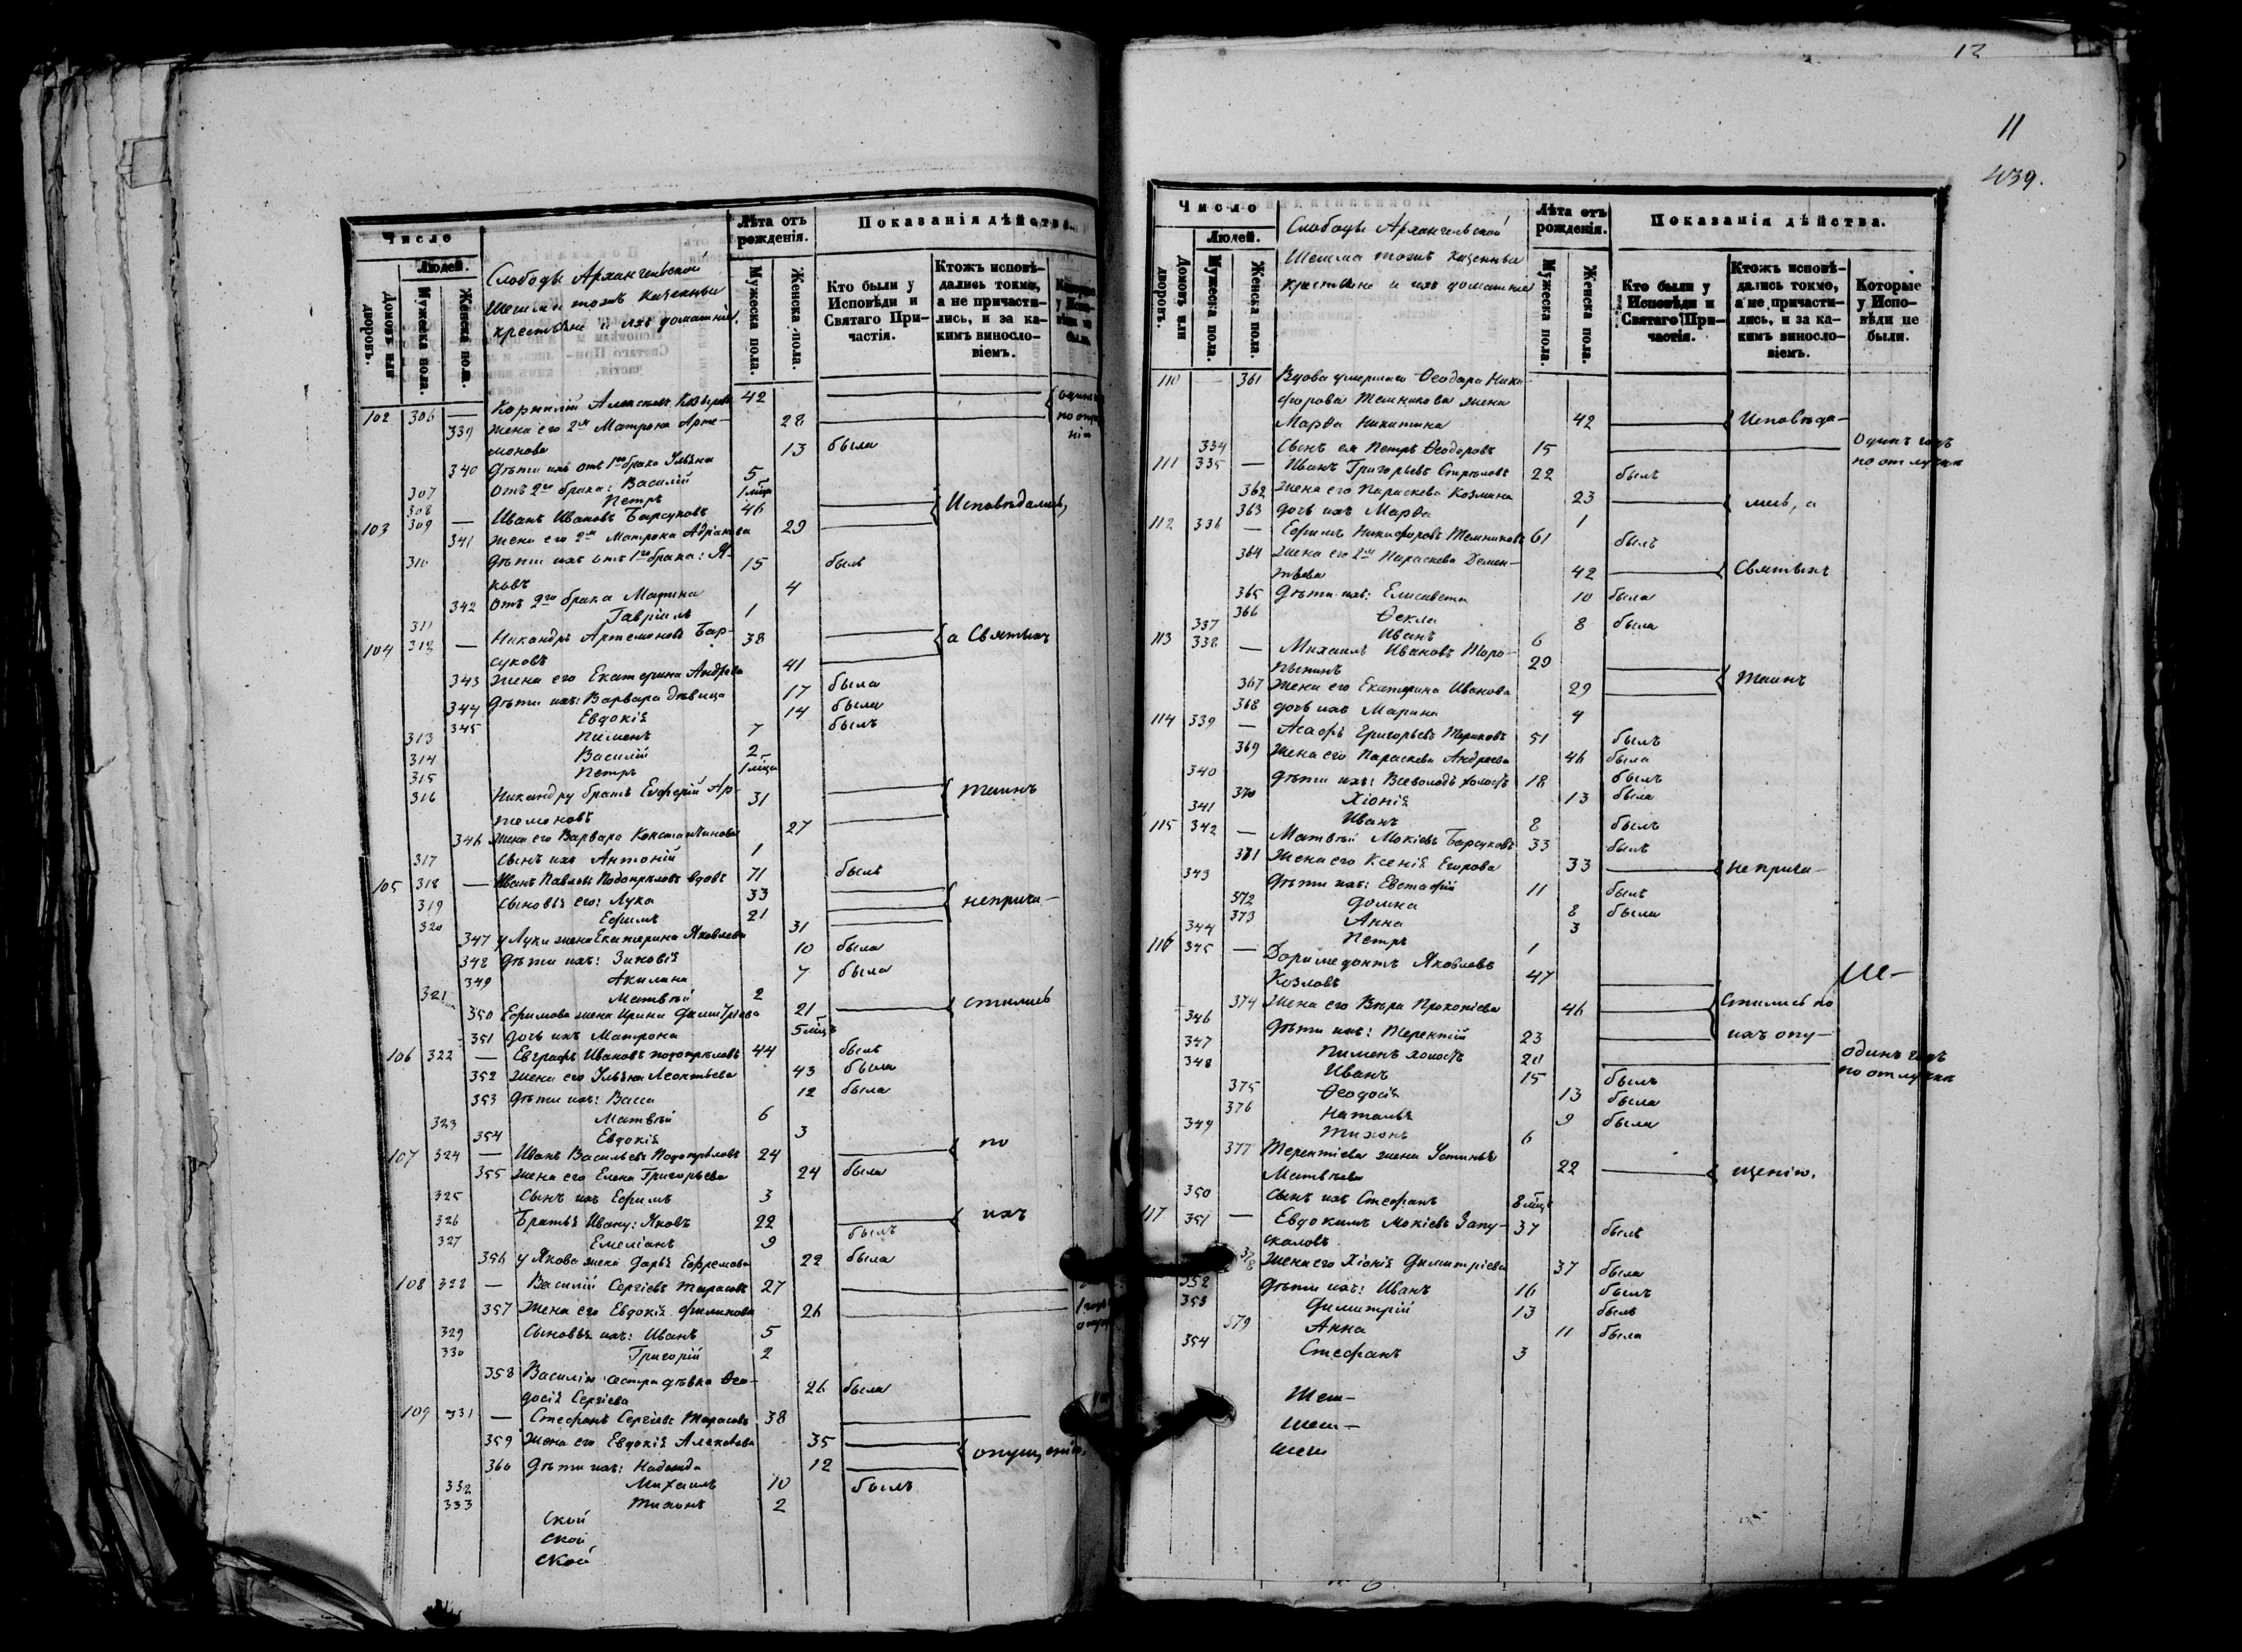 12
11
439.
Число
Людей.
Домовъ или дворовъ.
Мужеска пола.
Женска пола.
Слободы Архангельской
Шешма тожъ казенныя
крестьяне и ихъ домашніе.
Лѣта отъ рожденія.
Мужеска пола.
Женска пола.
Показанія дѣйства.
Кто были у Исповѣди и Святаго Причастія.
Ктожъ исповѣдались токмо, а не причастились, и за какимъ винословіемъ.
102 306 — Корнилій Алексѣевъ 42
339 жена его 2мъ Матрона Арте- 28
монова
340 дѣти ихъ отъ 1го брака Ульяна 13 была
307 отъ 2го брака: Василій 5
308 Петръ 1
103 309 — Иванъ Ивановъ Барсуковъ 46 Исповѣдались,
341 жена его 2мъ Матрона Адріанова 29
310 дѣти ихъ отъ 1го брака: Я- 15 былъ
ковъ
342 отъ 2го брака Марина 4
311 Гавріилъ 1
104 312 — Никандръ Артемоновъ Бар- 38 а Святыхъ
суковъ
343 жена его Екатерина Андреева 41
344 дѣти ихъ: Варвара дѣвица 17 была
345 Евдокія 14 была
313 Пименъ 7 былъ
314 Василій 2
315 Петръ 1
316 Никандру братъ Елферій Ар- 31 таинъ
темоновъ
346 жена его Варвара Константинова 27
317 сынъ ихъ Антоній 1
105 318 — Иванъ Павловъ Подопрѣловъ вдовъ 71 былъ
319 сыновья его: Лука 33 неприча-
320 Ефимъ 21
347 у Луки жена Екатерина Яковлева 31
348 дѣти ихъ: Зиновія 10 была
349 Акилина 7 была
321 Матвѣй 2
350 Ефимова жена Ирина Димитріева 21 стились
351 дочь ихъ Матрона 5
106 322 — Евграфъ Ивановъ Подопрѣловъ 44 былъ
352 жена его Ульяна Леонтьева 43 была
353 дѣти ихъ: Васса 12 была
323 Матвѣй 6
354 Евдокія 3
107 324 — Иванъ Васильевъ Подопрѣловъ 24 по
355 жена его Елена Григорьева 24 была
325 сынъ ихъ Ефимъ 3
326 братья Ивану: Яковъ 22 ихъ
327 Емеліанъ 9 былъ
356 у Якова жена Дарья Ефремова 22 была
108 328 — Василій Сергіевъ Тарасовъ 27
357 жена его Евдокія Филипова 26
329 сыновья ихъ: Иванъ 5
330 Григорій 2
358 Василію сестра дѣвка Ѳео- 26 была
досія Сергіева
109 331 — Стефанъ Сергіевъ Тарасовъ 38
359 жена его Евдокія Алексѣева 35 опущенію.
360 дѣти ихъ: Надежда 12
332 Михаилъ 10 былъ
333 Тихонъ 2
ской
ской
ской
Число
Людей.
Домовъ или дворовъ.
Мужеска пола.
Женска пола.
Слободы Архангельской
Шешма тожъ казенныя
крестьяне и ихъ домашніе
Лѣта отъ рожденія.
Мужеска пола.
Женска пола.
Показанія дѣйства.
Кто были у Исповѣди и Святаго Причастія.
Ктожъ исповѣдались токмо, а не причастились, и за какимъ винословіемъ.
Которые у Исповѣди не были.
110 — 361 Вдова умершаго Ѳеодора Ники-
форова Темникова жена
Марѳа Никитина 42 Исповѣда-
334 Сынъ ея Петръ Ѳеодоровъ 15 одинъ годъ по отлучкѣ
111 335 — Иванъ Григорьевъ Стрѣловъ 22 былъ
362 жена его Параскева Козмина 23 лись, а
363 дочь ихъ Марѳа 1
112 336 — Ефимъ Никифоровъ Темниковъ 61 былъ
364 жена его 2мъ Параскева Демен- 42 Святыхъ
тьева
365 дѣти ихъ: Елисавета 10 была
366 Ѳекла 8 была
337 Иванъ 6
113 338 — Михаилъ Ивановъ Торо- 29 таинъ
пыгинъ
367 жена его Екатерина Иванова 29
368 дочь ихъ Марина 4
114 339 — Асафъ Григорьевъ Териковъ 51 былъ
369 жена его Параскева Андреева 46 была
340 дѣти ихъ: Всеволодъ холостъ 18 былъ
370 Хіонія 13 была
341 Иванъ 8 былъ
115 342 — Матвѣй Мокіевъ Барсуковъ 33 былъ
371 жена его Ксенія Егорова 33 неприча-
343 дѣти ихъ: Евстафій 11 былъ
372 Домна 8 была
373 Анна 3
344 Петръ 1
116 345 — Доримедонтъ Яковлевъ 47
Козловъ
374 жена его Вѣра Прокопіева 46 стились по
346 дѣти ихъ: Терентій 23 ихъ опу-
347 Пименъ холостъ 20 одинъ годъ по отлучкѣ
348 Иванъ 15 былъ
375 Ѳеодосія 13 была
376 Наталья 9 была
349 Тихонъ 6
377 Терентіева жена Устинья 22 щенію.
Матвѣева
350 сынъ ихъ Стефанъ 8
117 351 — Евдокимъ Мокіевъ Запу- 37 былъ
скаловъ
378 жена его Хіонія Димитріева 37 была
352 дѣти ихъ: Иванъ 16 былъ
353 Димитрій 13 былъ
379 Анна 11 была
354 Стефанъ 3
Шеш-
шеш-
шеш